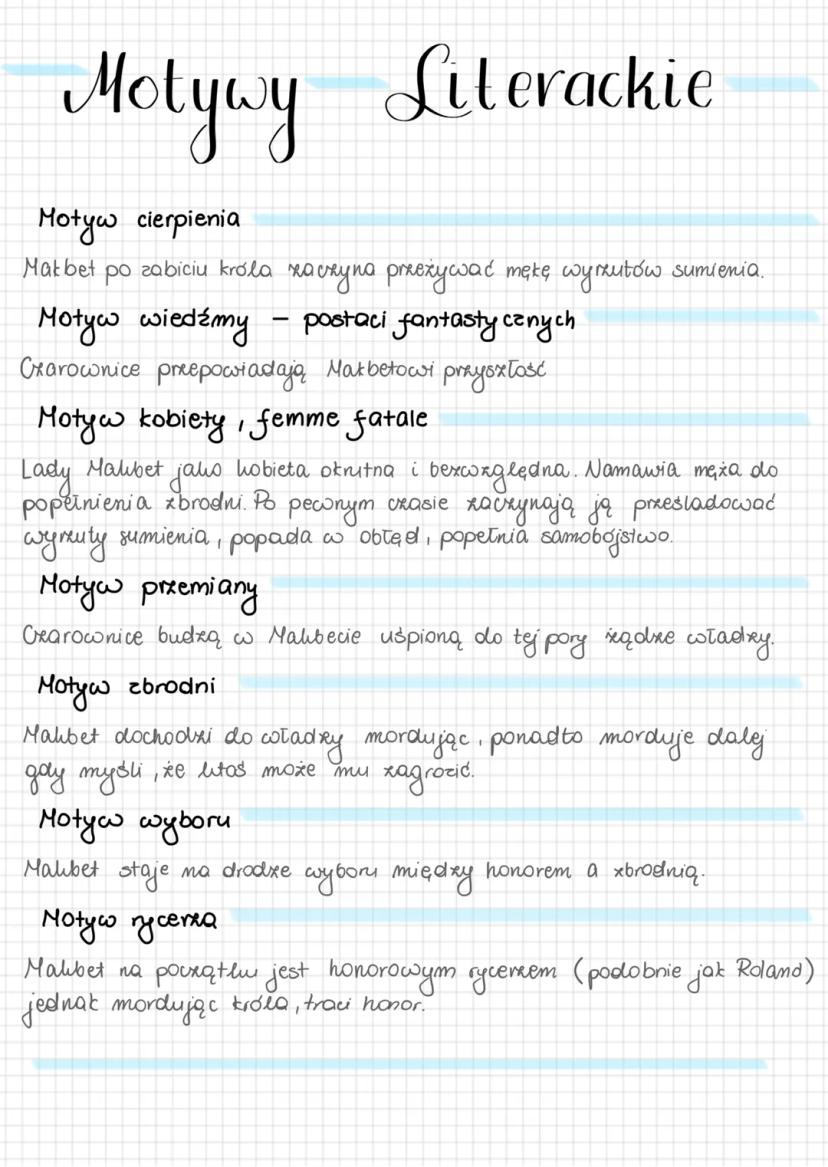 Motywy Literackie
Motyw cierpienia
Makbet po zabiciu króla zaczyna przeżywać mękę wyrzutów sumienia.
Motyw wiedźmy – postaci fantastycznych
Czarownice przepowiadają Makbetowi przyszłość
Motyw kobiety, femme fatale
Lady Makbet jako kobieta okrutna i bezwzględna. Namawia męża do
popełnienia zbrodni. Po pewnym czasie zaczynają ją prześladować
wyrzuty sumienia, popada w obłęd, popełnia samobójstwo.
Motyw przemiany
Czarownice budzą w Makbecie uśpioną do tej pory żądze władzy.
Motyw zbrodni
Makbet dochodzi do władzy mordując, ponadto morduje dalej
gdy myśli, że ktoś może mu zagrozić.
Motyw wyboru
Makbet staje na drodze wyboru między honorem a zbrodnią.
Motyw rycerza
Makbet na początku jest honorowym rycerzem (podobnie jak Roland)
jednak mordując króla, traci honor.